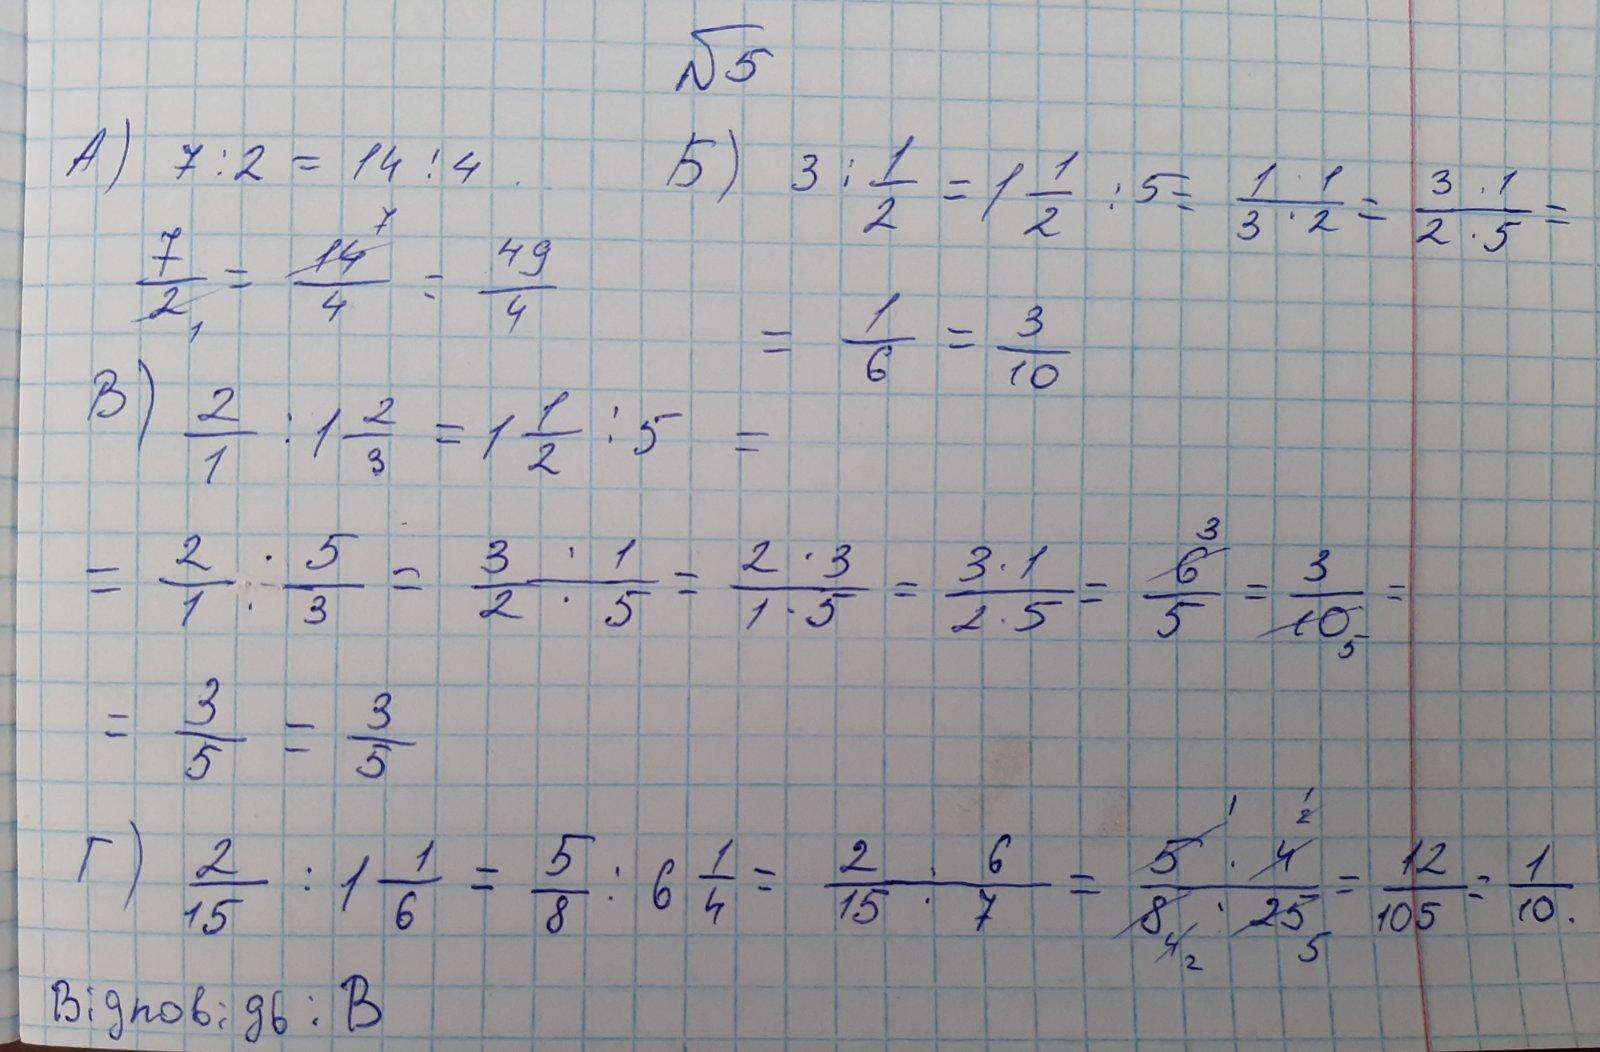 №5
А) 7 : 2 = 14 : 4.
7/2 1 = 14 7/4 = 49/4
Б) 3 : 1/2 = 1 1/2 : 5 = 1 · 1/3 · 2 = 3 · 1/2 · 5 =
= 1/6 = 3/10
В) 2/1 : 1 2/3 = 1 1/2 : 5 =
= 2/1 : 5/3 = 3 · 1/2 · 5 = 2 · 3/1 · 5 = 3 · 1/2 · 5 = 6 3/5 = 3/10 5 =
= 3/5 = 3/5
Г) 2/15 : 1 1/6 = 5/8 : 6 1/4 = 2 · 6/15 · 7 = 5 1 · 4 2 1/8 4 2 · 25 5 = 12/105 = 1/10.
Відповідь: В